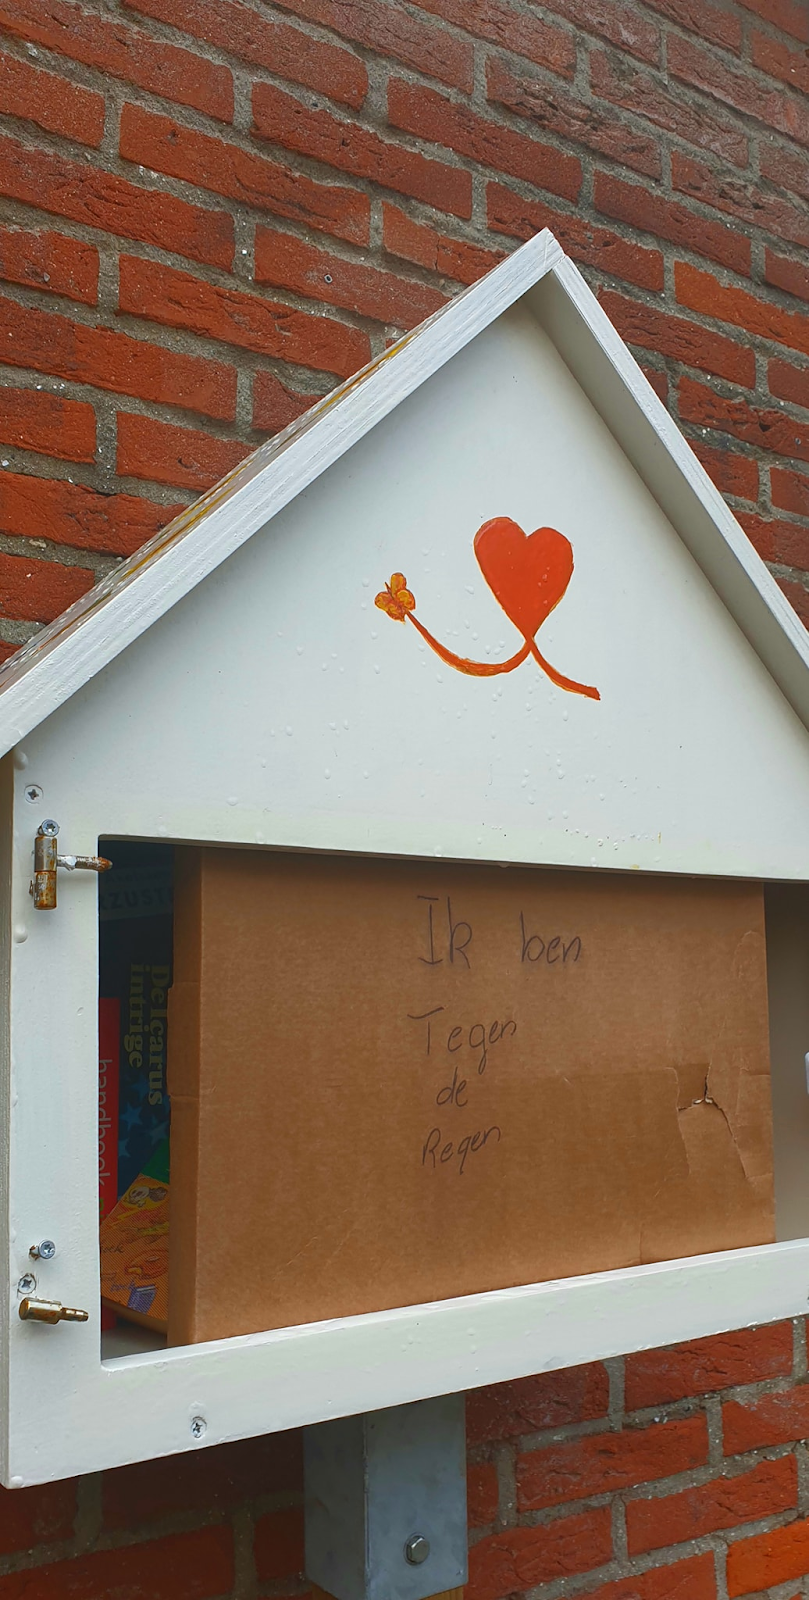 Ik ben
Tegen
de
Regen
De Icarus
intrige
handboek